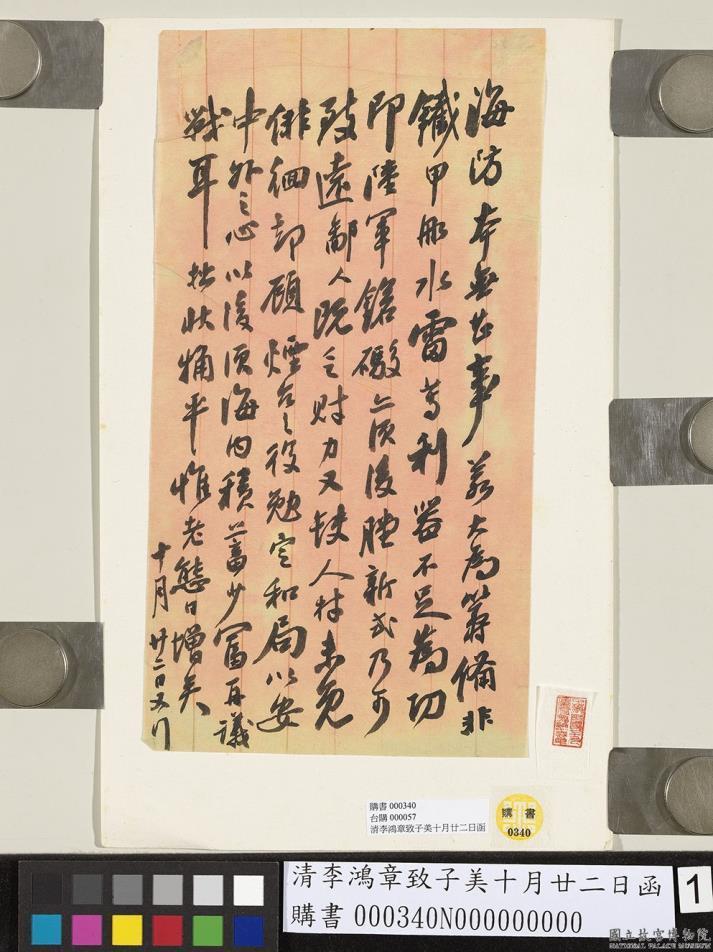 海防本無甚事若大為籌備非
鐵甲船水雷等利器不足為功
即陸軍鎗礮亦須後膛新式乃可
致遠鄙人既乏財力又缺人材未免
徘徊却顧煙台之役勉定和局以安
中外之心以後須海內積蓄少富再議
戰耳拙狀平惟老態日增矣
十月廿二日又
購書 000340
台購 000057
清李鴻章致子美十月廿二日函
購書
0340
清李鴻章致子美十月廿二日函
購書 000340N000000000
1
國立故宮博物院
NATIONAL PALACE MUSEUM